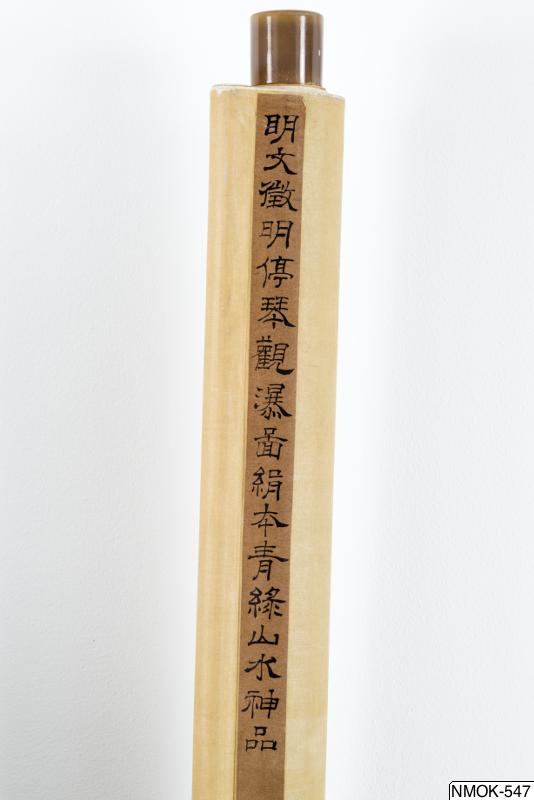 明文徵明停琴觀瀑啚絹本青綠山水神品
NMOK-547